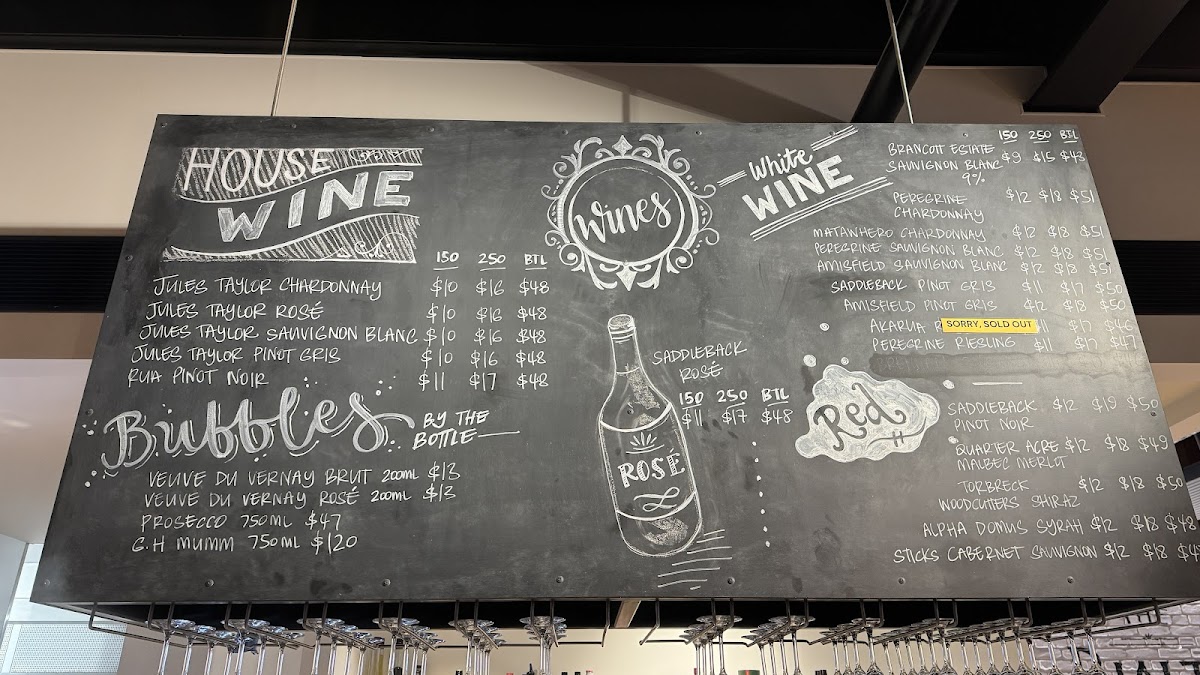 HOUSE
WINE
150 250 BTL
JULES TAYLOR CHARDONNAY $10 $16 $48
JULES TAYLOR ROSÉ $10 $16 $48
JULES TAYLOR SAUVIGNON BLANC $10 $16 $48
JULES TAYLOR PINOT GRIS $10 $16 $48
RUA PINOT NOIR $11 $17 $48
Bubbles
BY THE
BOTTLE
VEUVE DU VERNAY BRUT 200ML $13
VEUVE DU VERNAY ROSÉ 200ML $13
PROSECCO 750ML $47
G.H MUMM 750ML $120
Wines
SADDLEBACK
ROSÉ
150 250 BTL
$11 $17 $48
ROSÉ
White
WINE
150 250 BTL
BRANCOTT ESTATE
SAUVIGNON BLANC $9 $15 $43
9%
PEREGRINE $12 $18 $51
CHARDONNAY
MATAWHERO CHARDONNAY $12 $18 $51
PEREGRINE SAUVIGNON BLANC $12 $18 $51
AMISFIELD SAUVIGNON BLANC $12 $18 $51
SADDLEBACK PINOT GRIS $11 $17 $50
AMISFIELD PINOT GRIS $12 $18 $50
AKARUA SORRY, SOLD OUT $17 $46
PEREGRINE RIESLING $11 $17 $47
Red
SADDLEBACK $12 $19 $50
PINOT NOIR
QUARTER ACRE $12 $18 $49
MALBEC MERLOT
TORBRECK $12 $18 $50
WOODCUTTERS SHIRAZ
ALPHA DOMUS SYRAH $12 $18 $48
STICKS CABERNET SAUVIGNON $12 $18